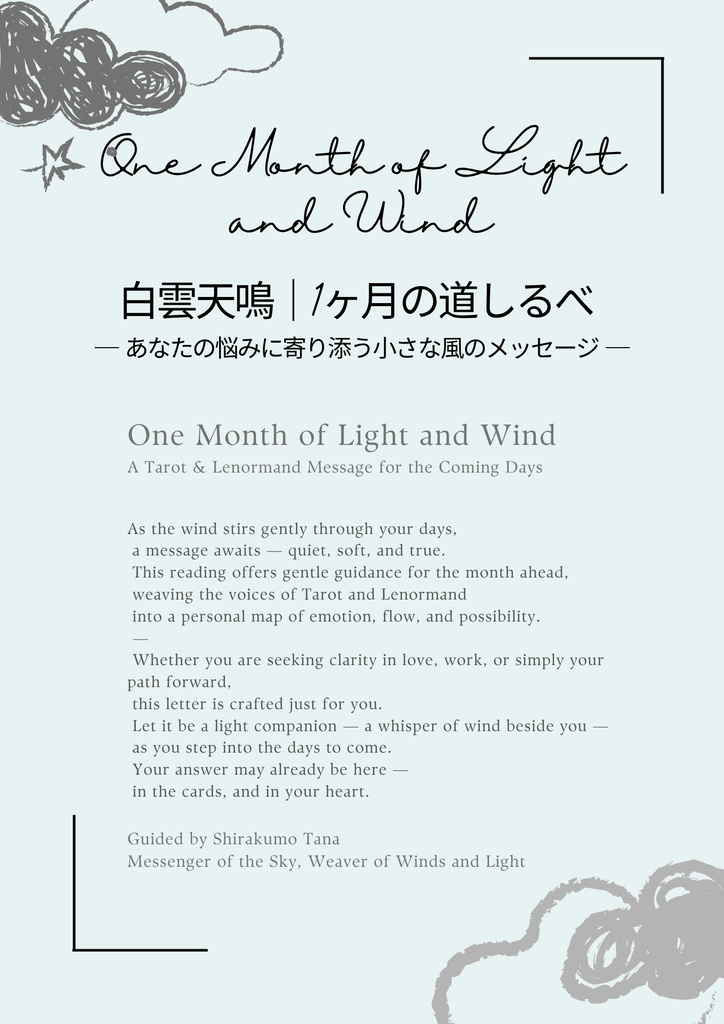 One Month of Light
and Wind
白雲天鳴｜1ヶ月の道しるべ
— あなたの悩みに寄り添う小さな風のメッセージ —
One Month of Light and Wind
A Tarot & Lenormand Message for the Coming Days
As the wind stirs gently through your days,
a message awaits — quiet, soft, and true.
This reading offers gentle guidance for the month ahead,
weaving the voices of Tarot and Lenormand
into a personal map of emotion, flow, and possibility.
—
Whether you are seeking clarity in love, work, or simply your
path forward,
this letter is crafted just for you.
Let it be a light companion — a whisper of wind beside you —
as you step into the days to come.
Your answer may already be here —
in the cards, and in your heart.
Guided by Shirakumo Tana
Messenger of the Sky, Weaver of Winds and Light